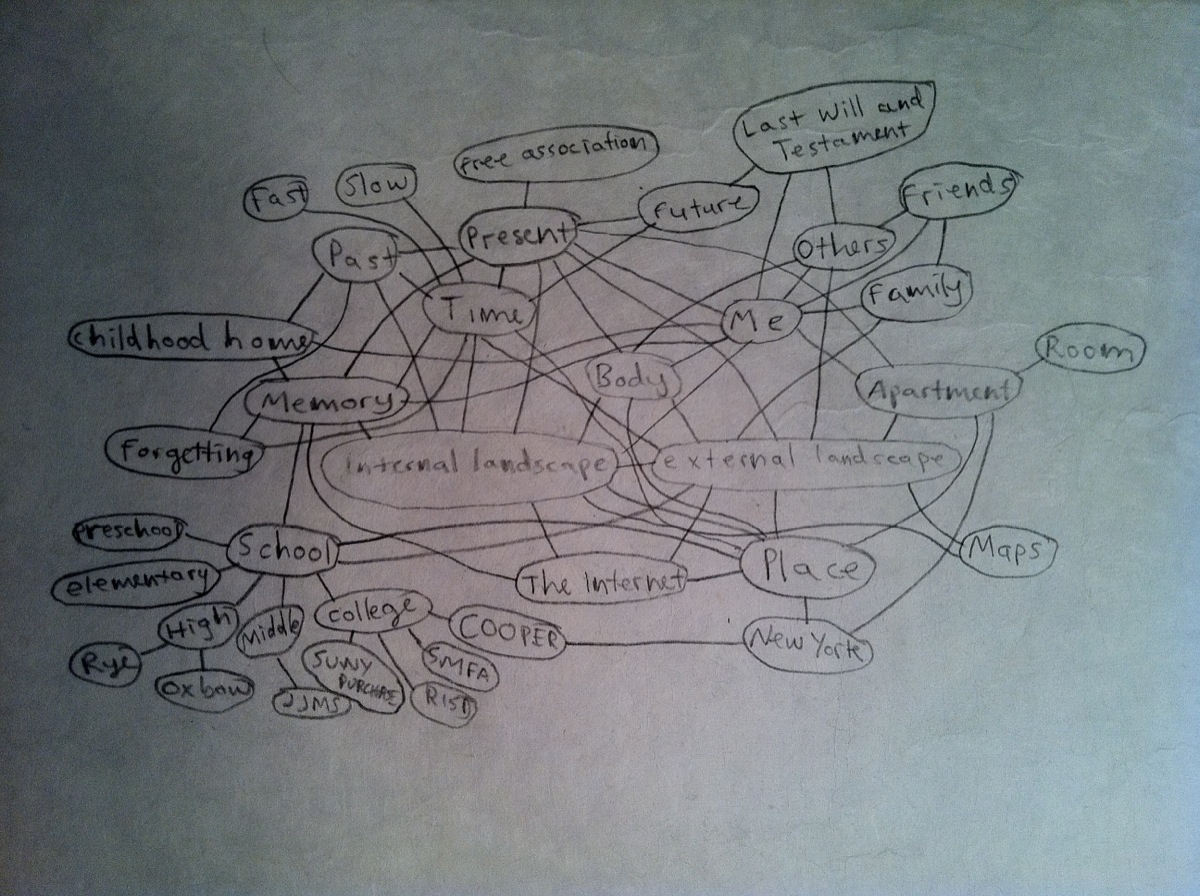 Last Will and
Testament
Free association
Fast
Slow
Future
Friends
Past
Present
Others
Time
Me
Family
childhood home
Room
Body
Apartment
Memory
Forgetting
Internal landscape
external landscape
preschool
School
Maps
elementary
The Internet
Place
High
Middle
college
COOPER
New York
Rye
SUNY
PURCHASE
SMFA
Oxbow
JJMS
RISD